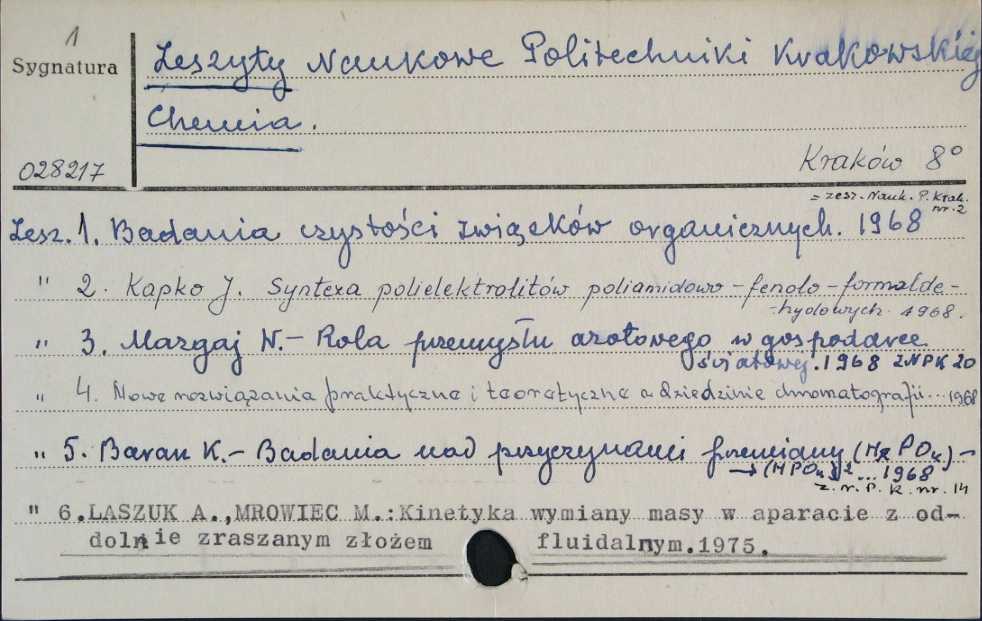 1
Sygnatura
Zeszyty Naukowe Politechniki Krakowskiej
Chemia.
028217
Kraków 8°
= zesz. Nauk. P. Krak.
nr. 2
Zesz. 1. Badania czystości związków organicznych. 1968
" 2. Kapko J. Synteza polielektrolitów poliamidowo-fenolo-formalde-
-hydowych. 1968.
" 3. Mazgaj W.- Rola przemysłu azotowego w gospodarce
światowej. 1968 ZNPK 20
" 4. Nowe rozwiązania praktyczne i teoretyczne w dziedzinie chromatografii... 1968
" 5. Baran K.- Badania nad przyczynami przemiany
→ ... 1968
z. n. P. K. nr. 14
" 6.LASZUK A.,MROWIEC M.:Kinetyka wymiany masy w aparacie z od-
dolnie zraszanym złożem fluidalnym.1975.